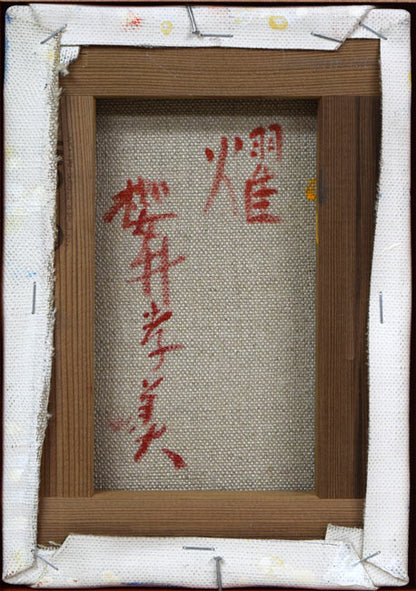 耀
櫻井孝美